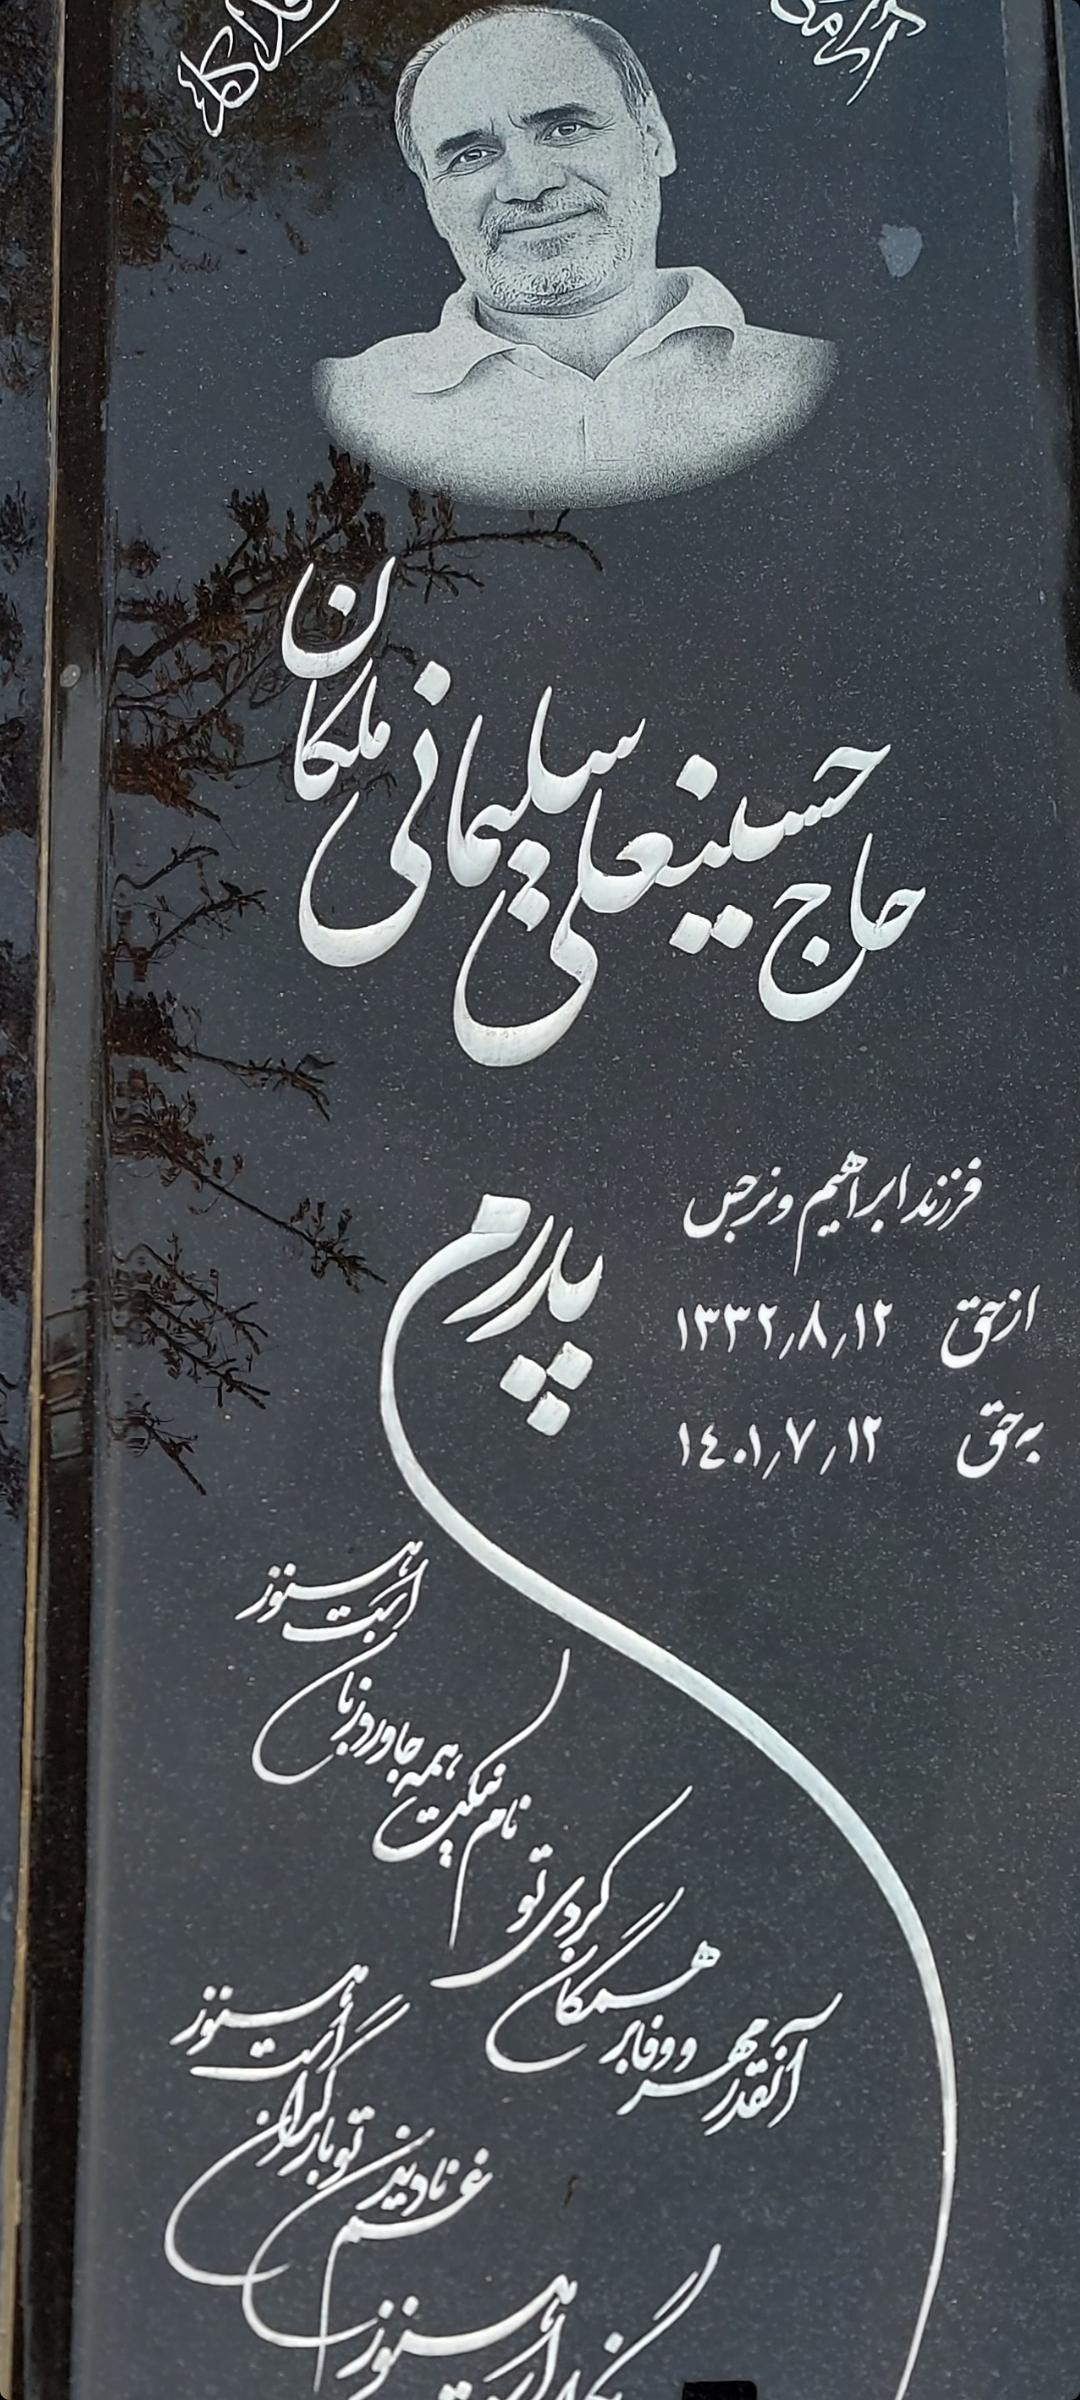 آرامگاه
حاج حسینعلی سلیمانی ملکان
فرزند ابراهیم و نرجس
از حق ۱۳۳۲٫۸٫۱۲
به حق ۱٤۰۱٫۷٫۱۲
پدرم
آنقدر مهر و وفا بر همگان کردی تو
نام نیکت همه جا ورد زبان است هنوز
غم نادیدن تو بار گران است هنوز
هنوز